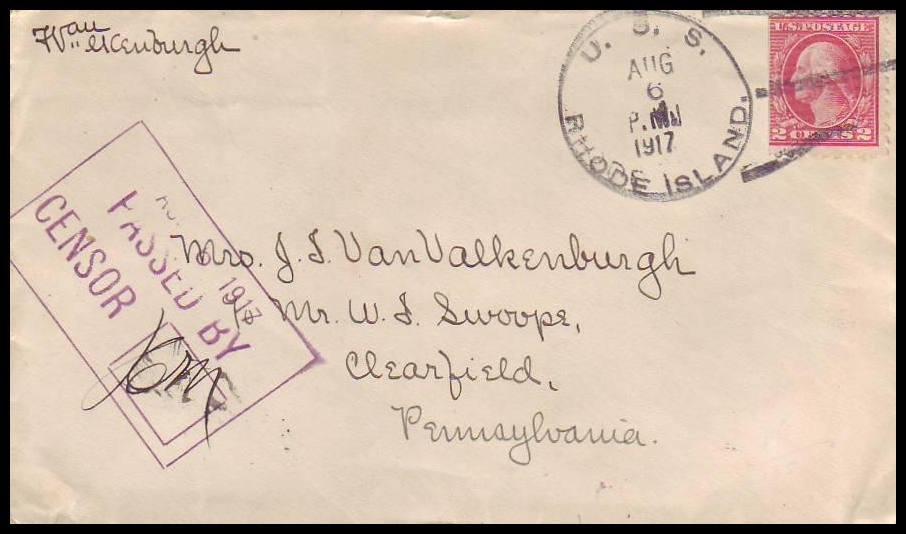 Van
Valkenburgh
U. S. S.
AUG
6
P.M.
1917
RHODE ISLAND.
U.S. POSTAGE
2 CENTS 2
1917
PASSED BY
CENSOR
Mrs. J. S. VanValkenburgh
% Mr. W. I. Swoope,
Clearfield,
Pennsylvania.